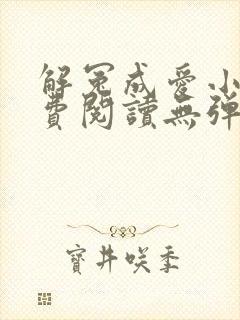 解冤成愛小
費閱讀無彈
寶井咲季